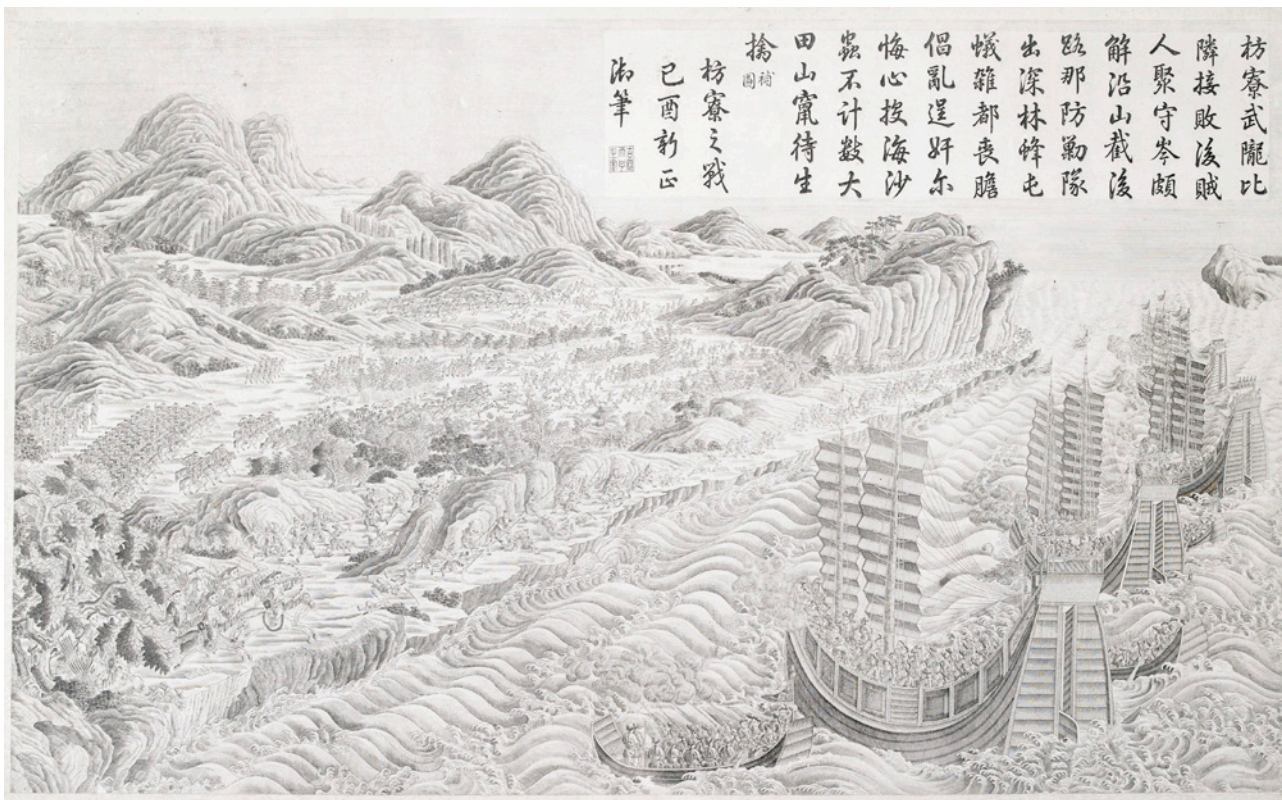 枋寮武隴比
隣接敗後賊
人聚守岑頗
解沿山截後
路那防勦隊
出深林蜂屯
蟻雜都喪膽
倡亂逞奸尔
悔心投海沙
蟲不计数大
田山窜待生
擒補圖
枋寮之戰
己酉新正
御筆